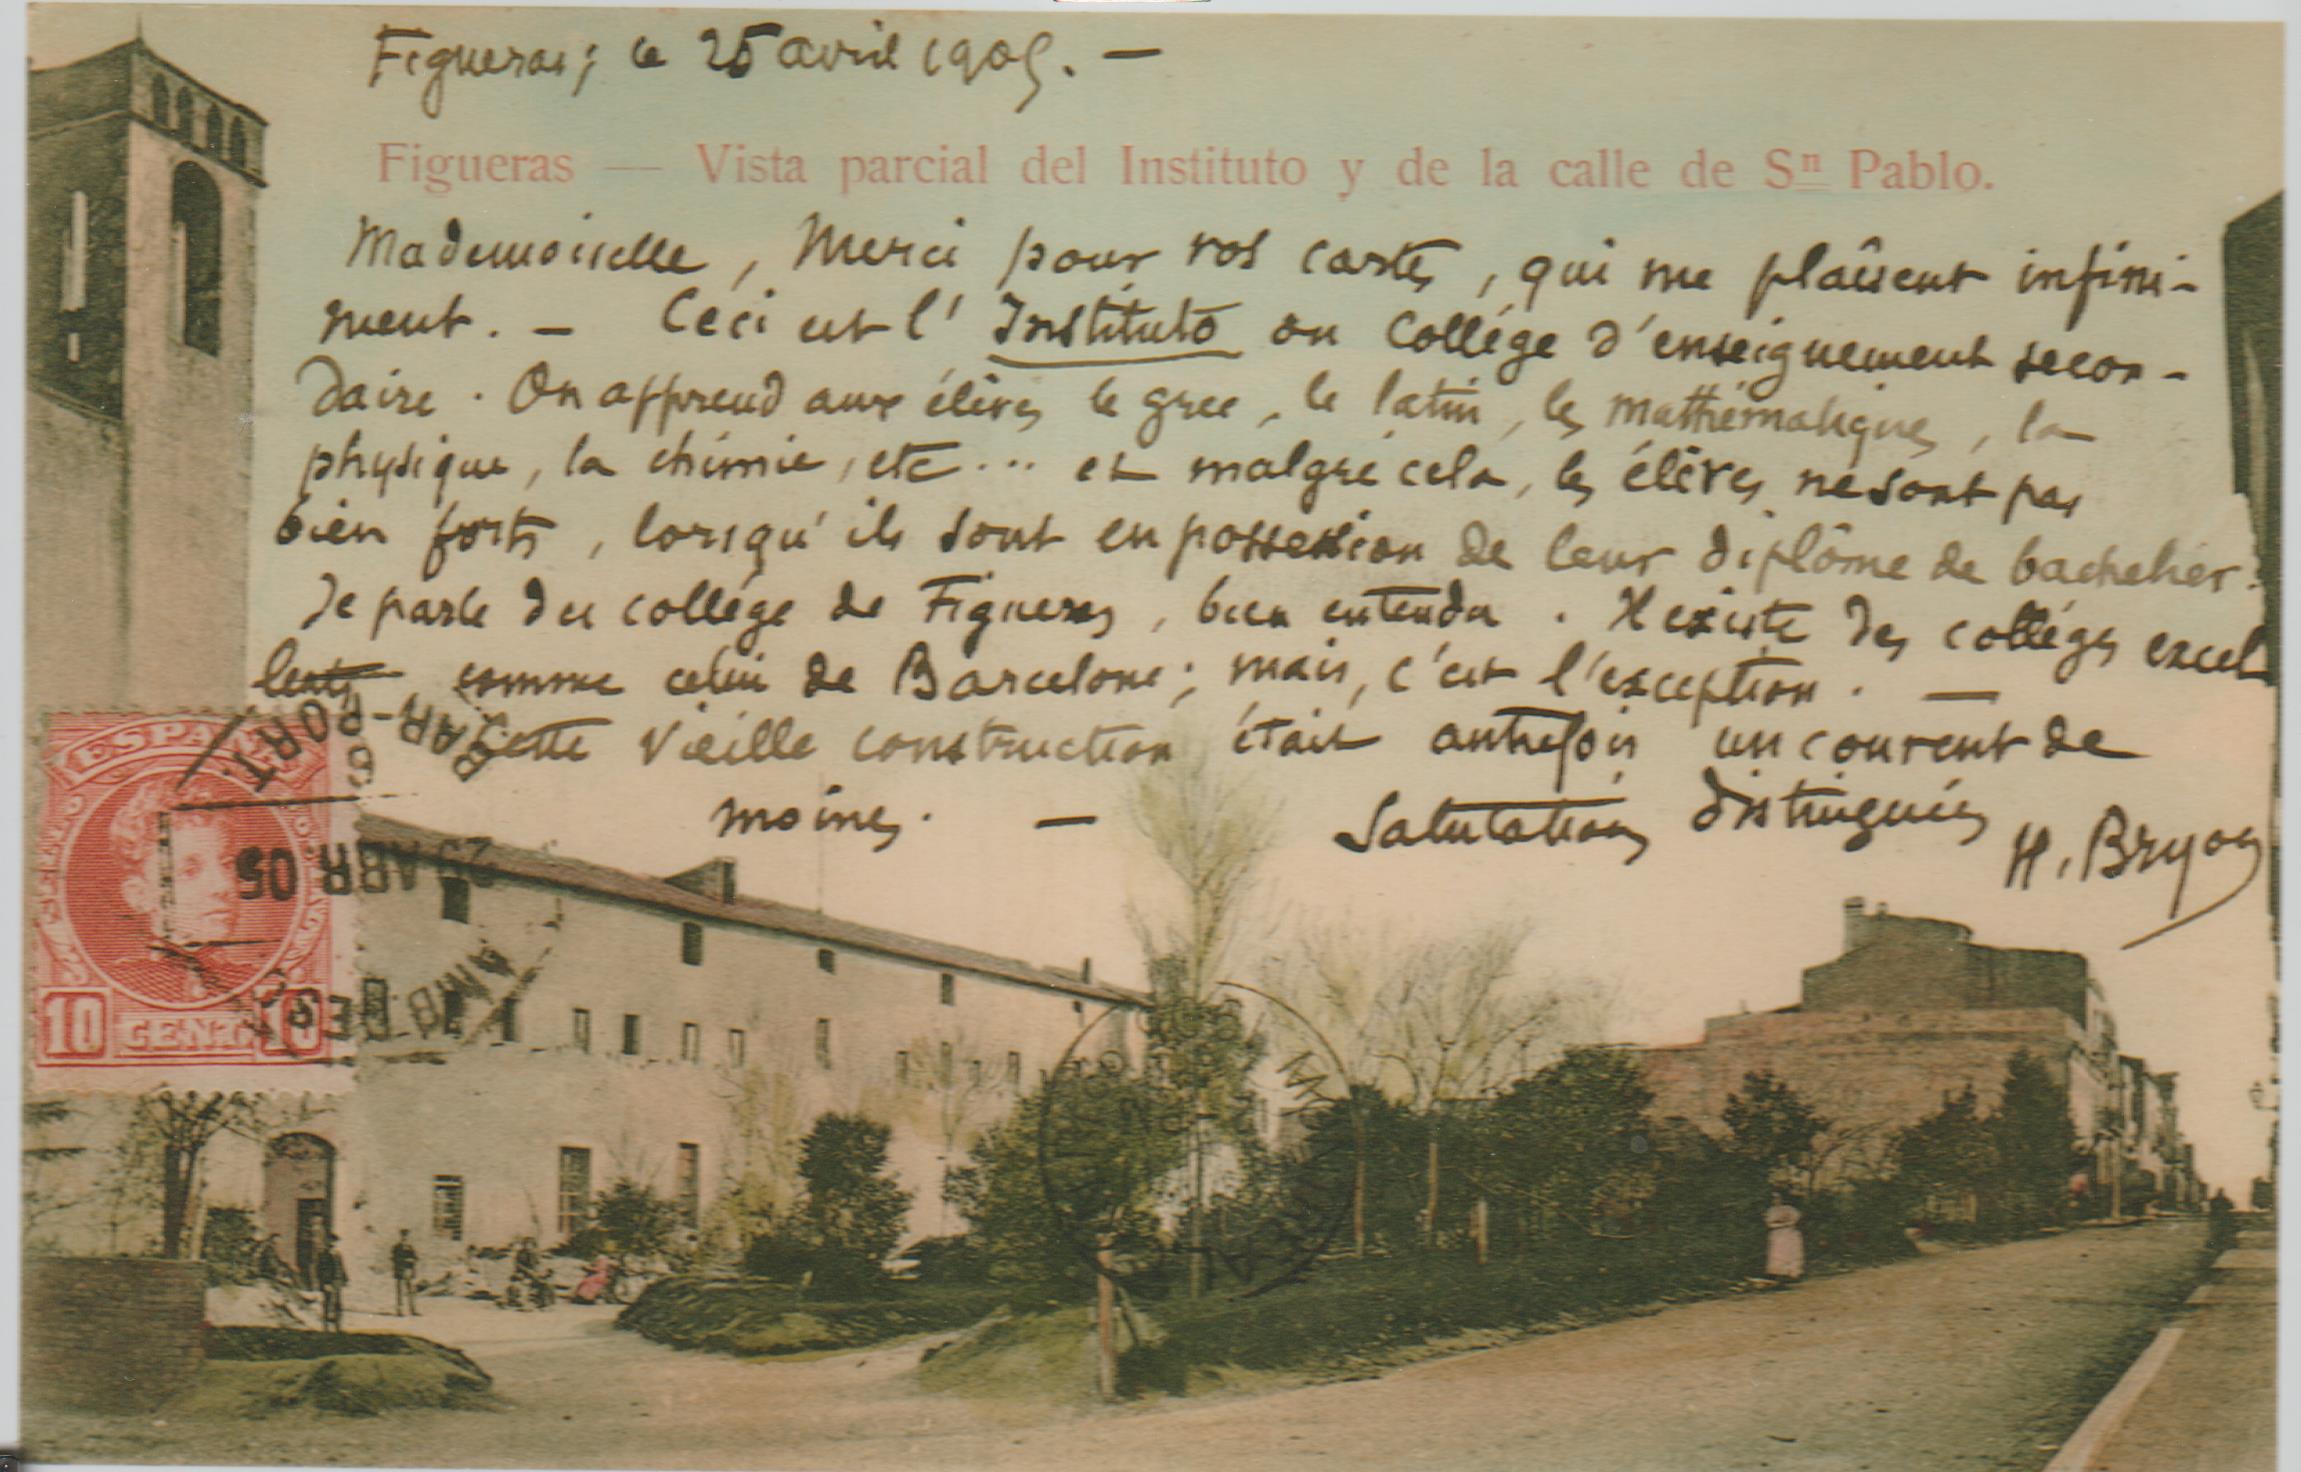 Figueras, le 25 avril 1905. —
Figueras — Vista parcial del Instituto y de la calle de Sn Pablo.
Mademoiselle, Merci pour vos cartes, qui me plaîsent infini-
ment. — Ceci est l'Instituto ou Collége d'enseignement secon-
daire. On apprend aux élèves le grec, le latin, les mathématiques, la
physique, la chimie, etc... et malgré cela, les élèves ne sont pas
bien forts, lorsqu'ils sont en possession de leur diplôme de bachelier.
Je parle du collége de Figueras, bien entendu. Il existe des colléges excel
lents, comme celui de Barcelone; mais, c'est l'exception. —
Cette vieille construction était autrefois un couvent de
moines. — Salutations distinguées
H. Bryon
ESPAÑA
10 CENT. 10
BAR-PORT.
25 ABR 05
AMB DESC